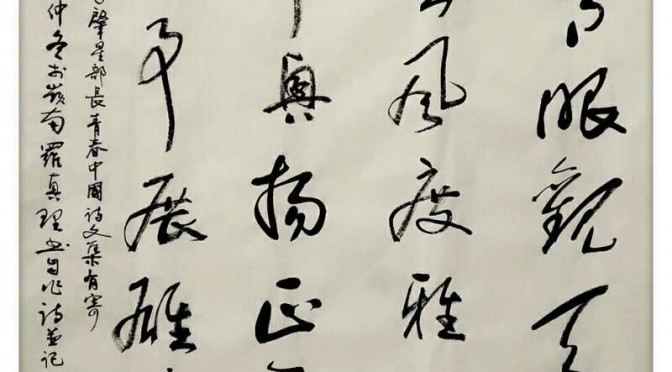 眼觀天
風度雅
與揚正
展雄
肇星部長青春中國詩文集有寄
仲冬於嶺南羅真理書自作詩並記